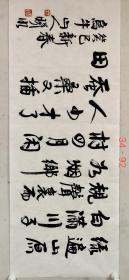 綠遍山原
白滿川子
規聲裏雨
如烟鄉
村四月闲
人少才了
蚕桑又插
田
癸巳新春
34-92